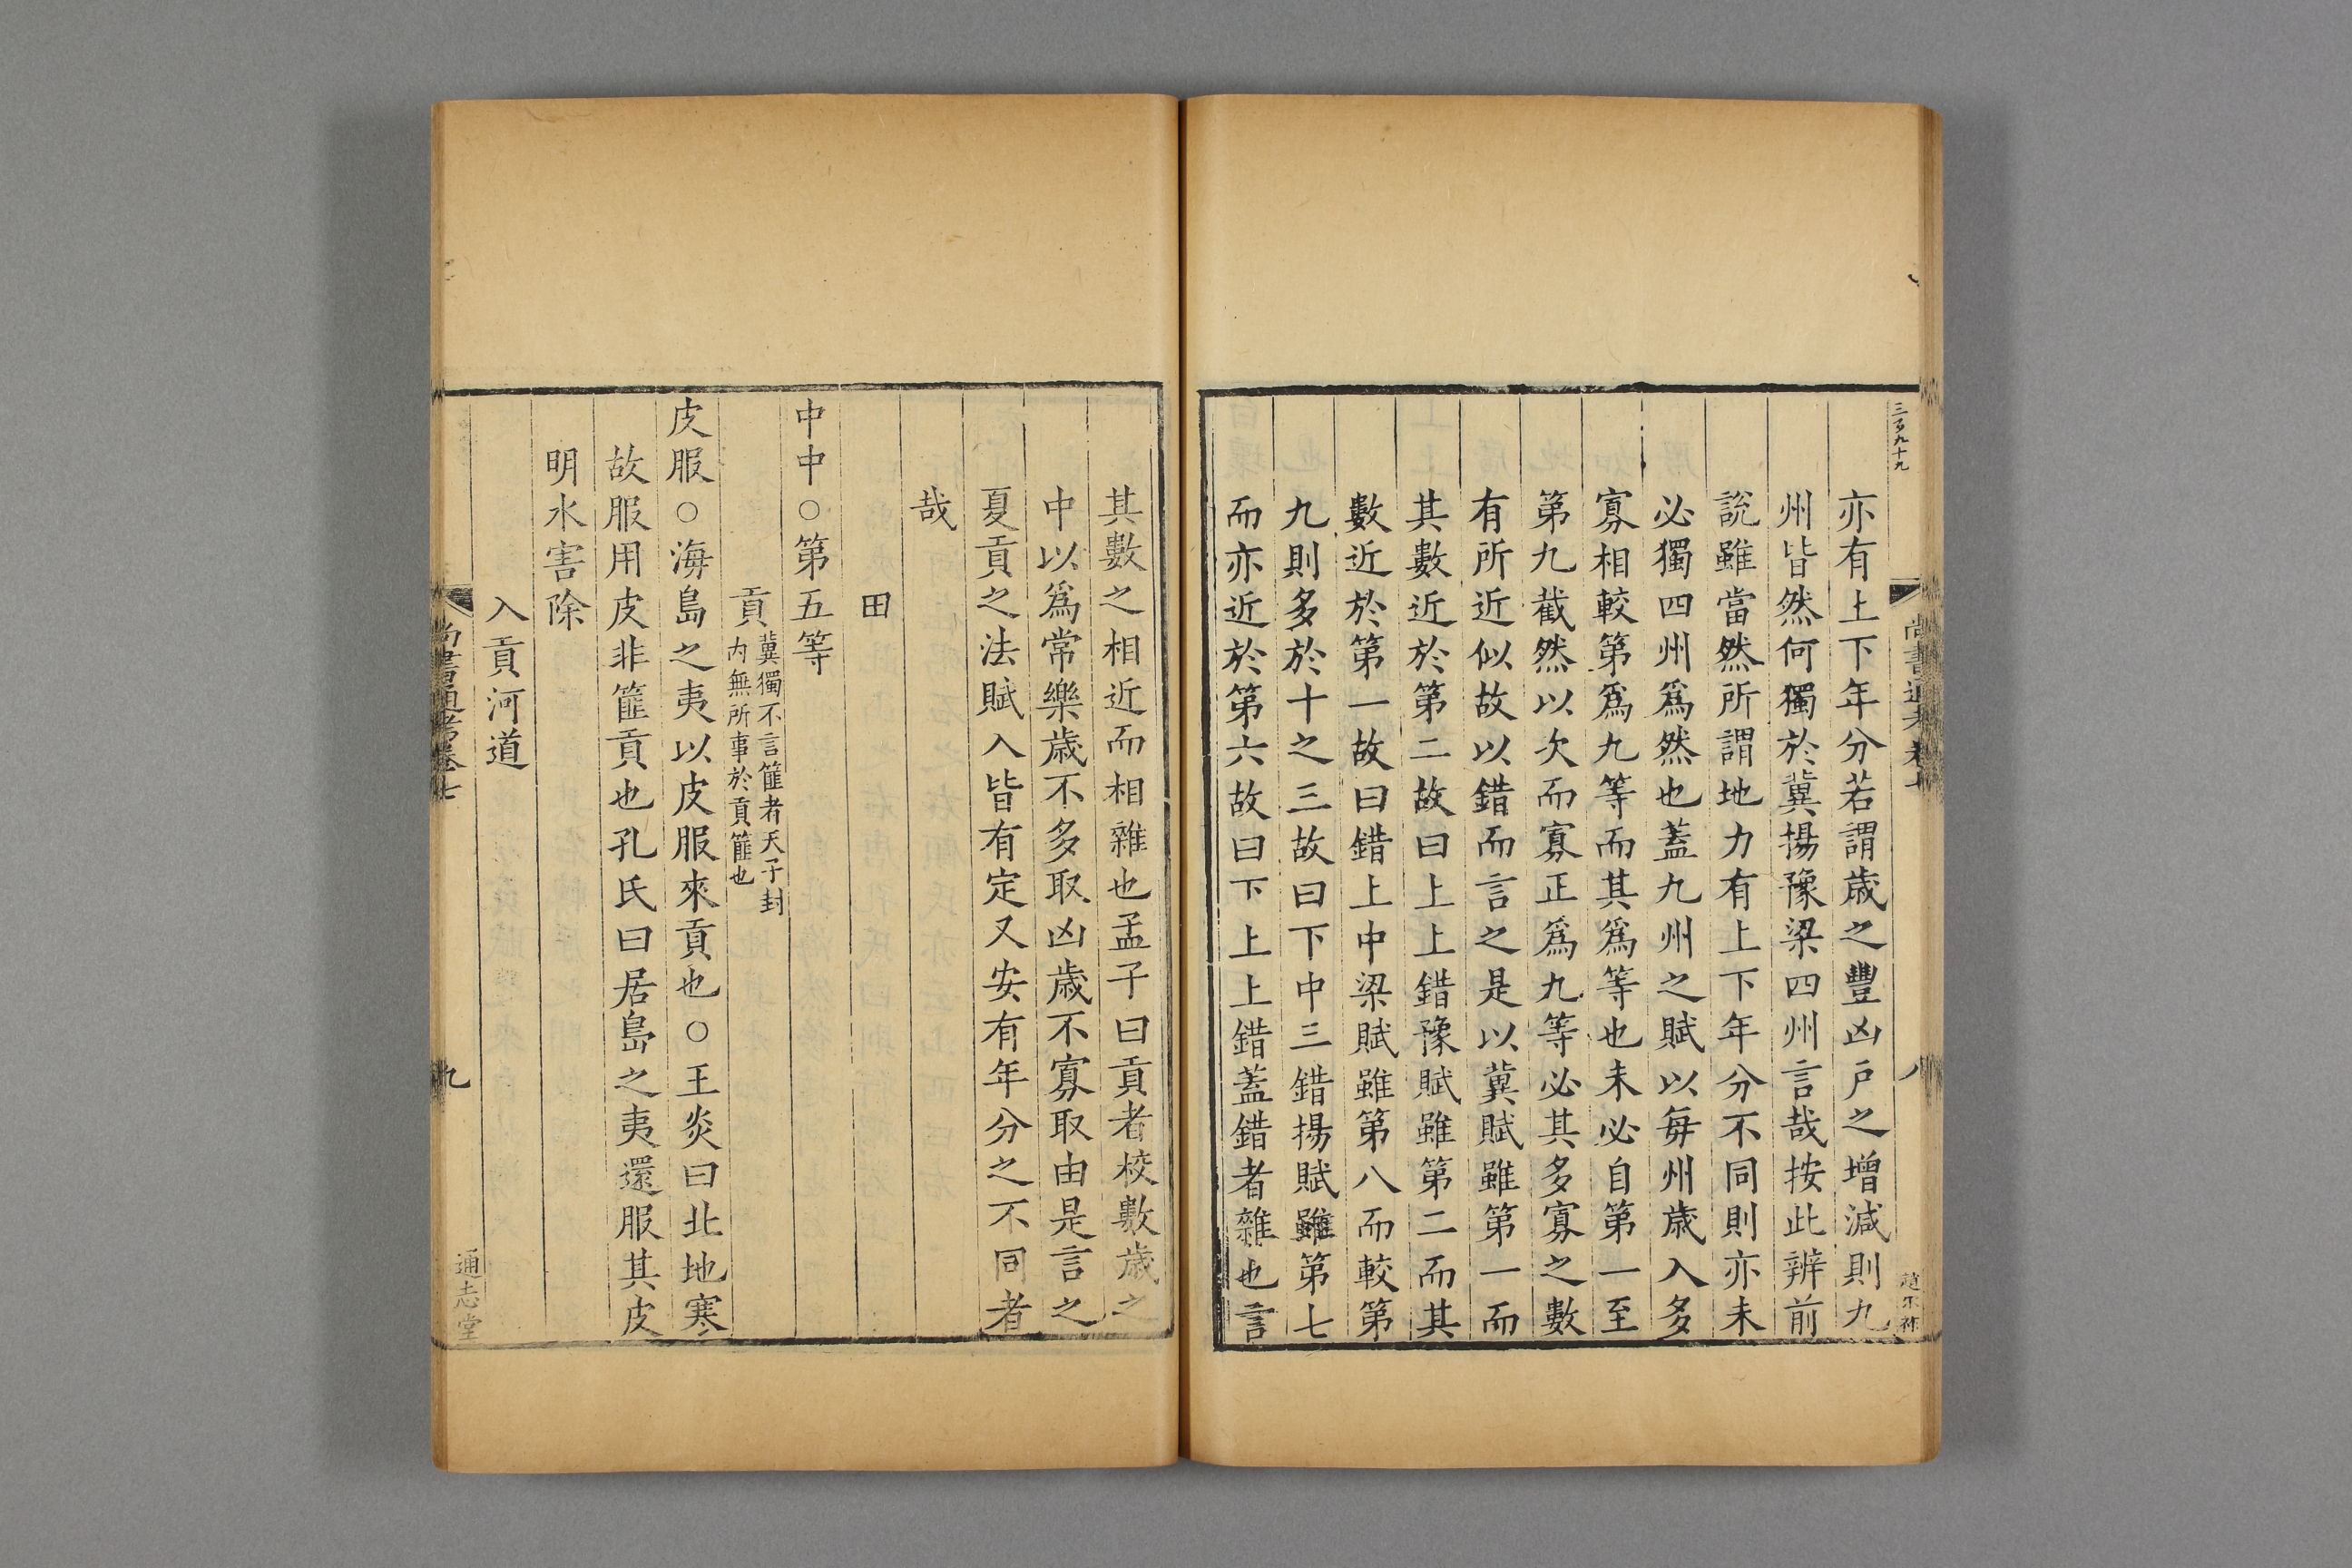 三百九十九
尚書通考卷七
八
亦有上下年分若謂歳之豐凶戸之增減則九
州皆然何獨於冀揚豫梁四州言哉按此辨前
說雖當然所謂地力有上下年分不同則亦未
必獨四州爲然也蓋九州之賦以毎州歳入多
寡相較第爲九等而其爲等也未必自第一至
第九截然以次而寡正爲九等必其多寡之數
有所近似故以錯而言之是以冀賦雖第一而
其數近於第二故曰上上錯豫賦雖第二而其
數近於第一故曰錯上中梁賦雖第八而較第
九則多於十之三故曰下中三錯揚賦雖第七
而亦近於第六故曰下上上錯蓋錯者雜也言
其數之相近而相雜也孟子曰貢者校數歳之
中以爲常樂歳不多取凶歳不寡取由是言之
夏貢之法賦入皆有定又安有年分之不同者
哉
田
中中○第五等
貢冀獨不言篚者天子封
内無所事於貢篚也
皮服○海島之夷以皮服來貢也○王炎曰北地寒
故服用皮非篚貢也孔氏曰居島之夷還服其皮
明水害除
入貢河道
尚書通考卷七
九
通志堂